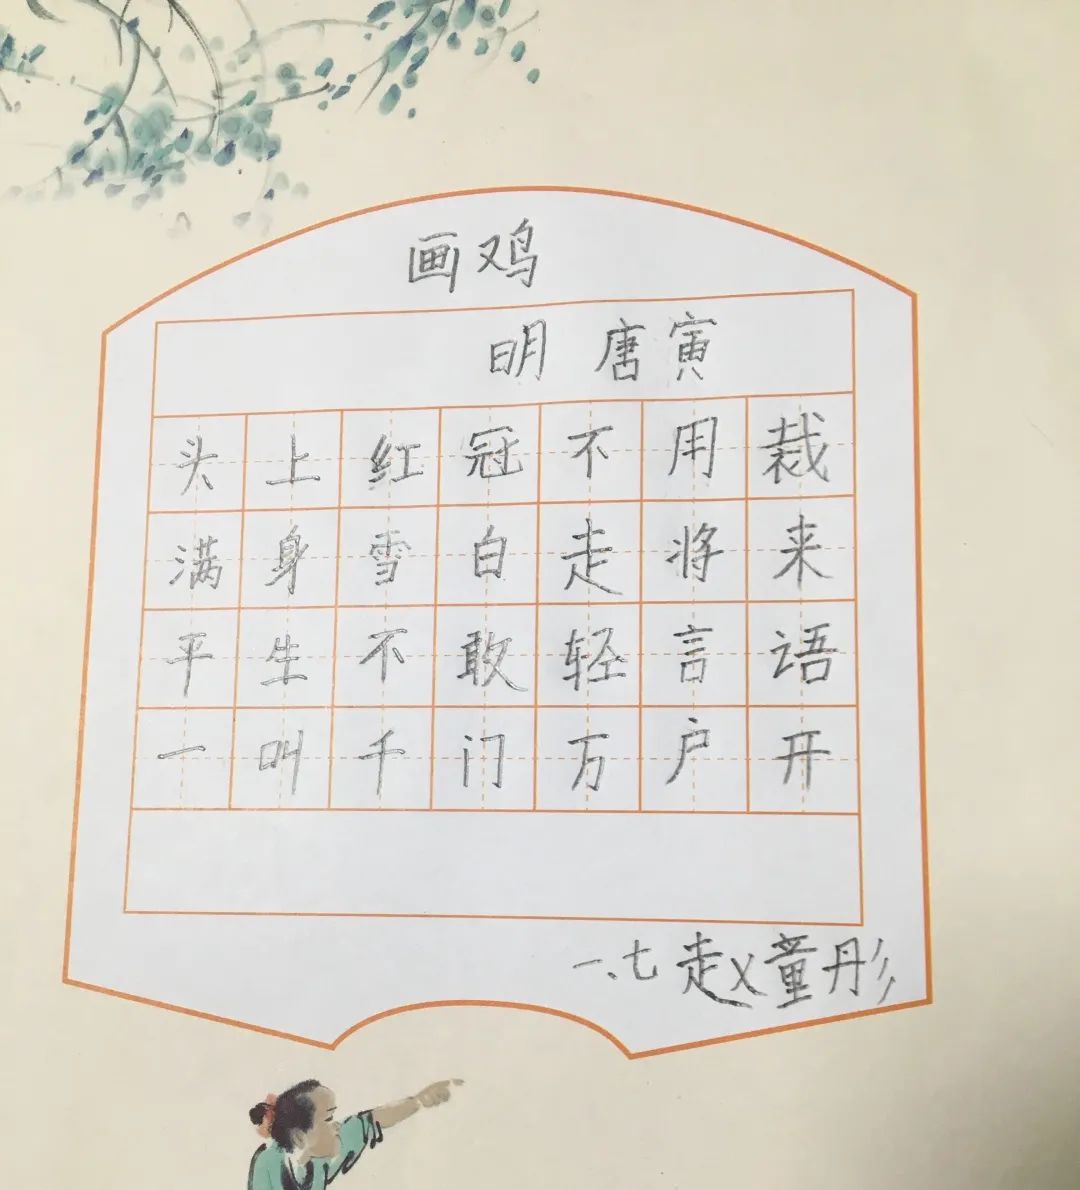 画鸡
明 唐寅
头上红冠不用裁
满身雪白走将来
平生不敢轻言语
一叫千门万户开
一、七 赵童彤